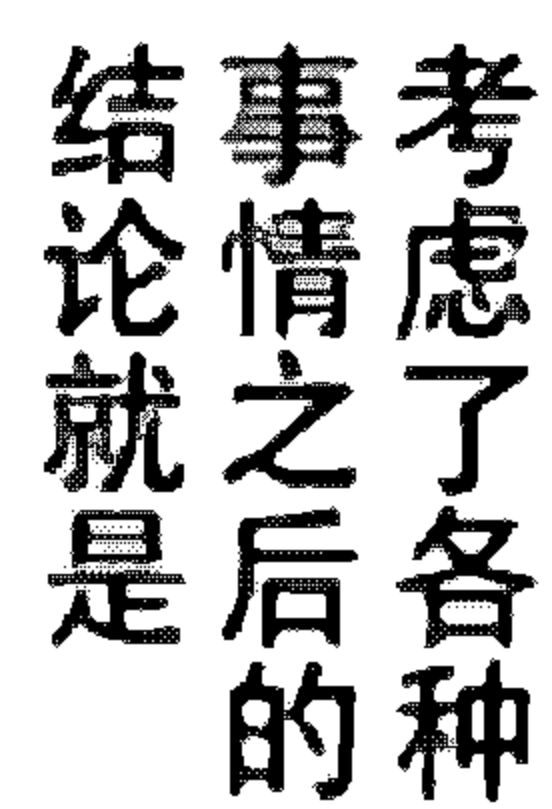 考虑了各种
事情之后的
结论就是